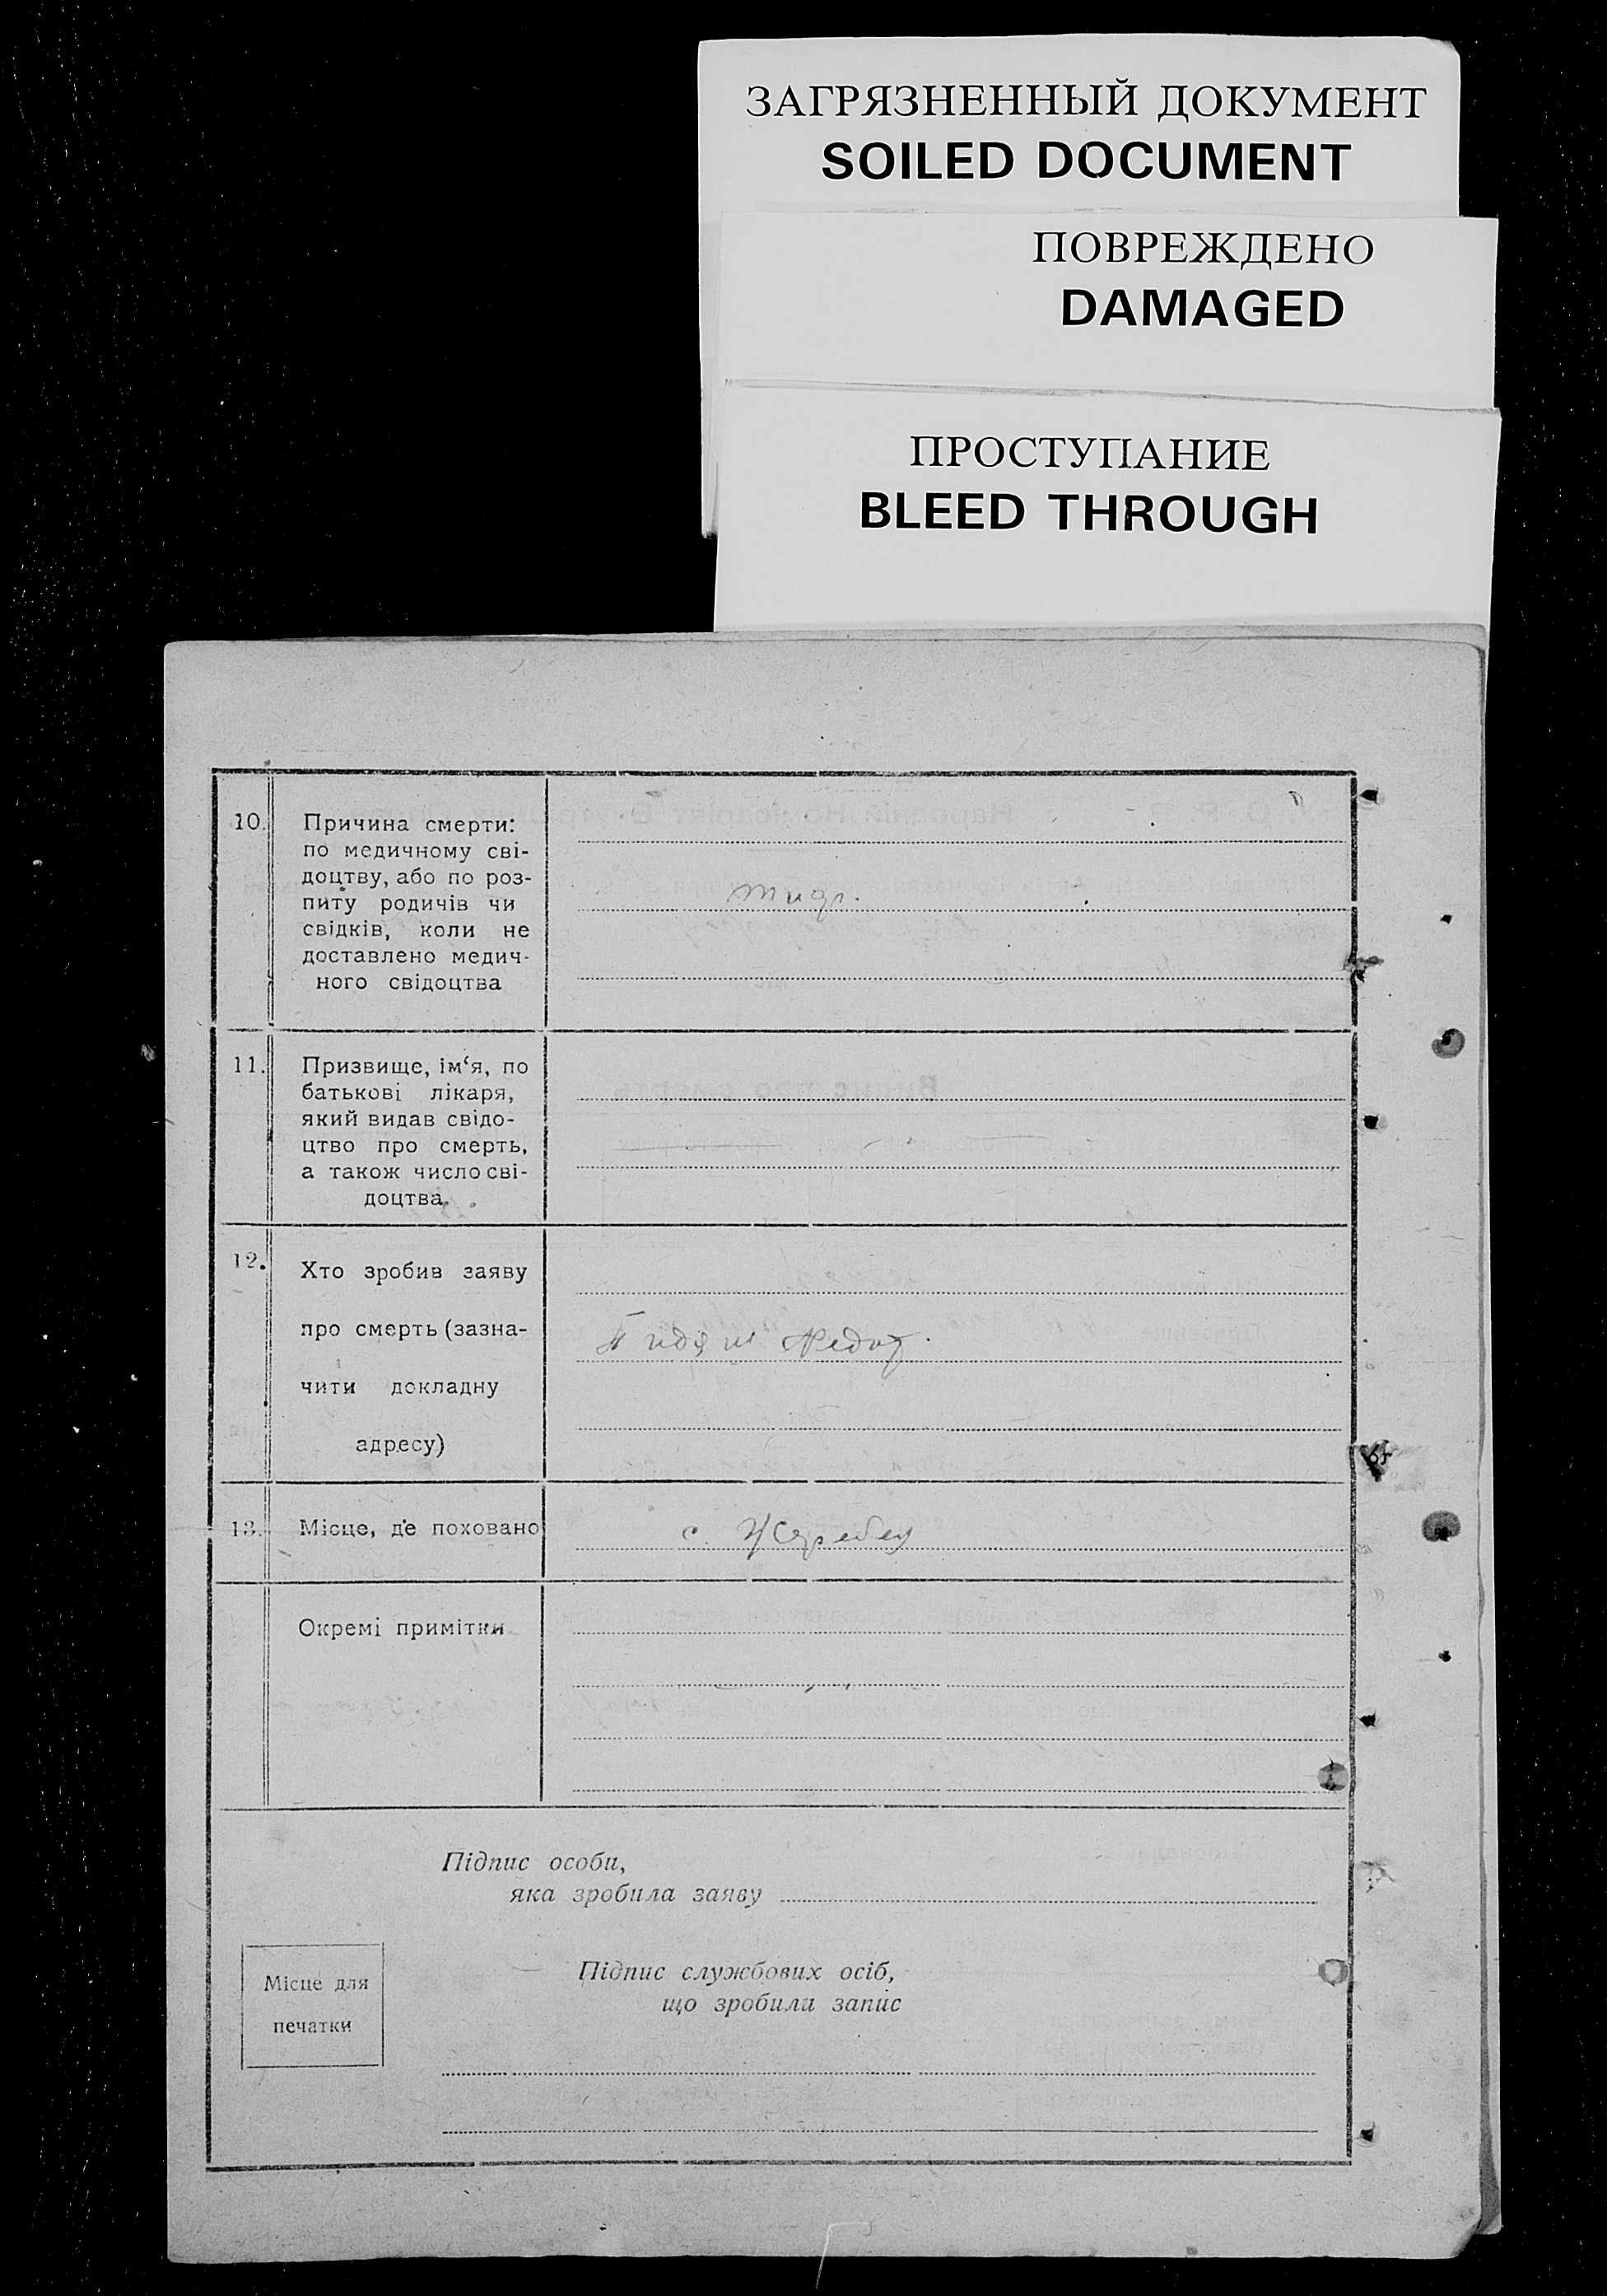 ЗАГРЯЗНЕННЫЙ ДОКУМЕНТ
SOILED DOCUMENT
ПОВРЕЖДЕНО
DAMAGED
ПРОСТУПАНИЕ
BLEED THROUGH
10. Причина смерти:
по медичному сві-
доцтву, або по роз-
питу родичів чи
свідків, коли не
доставлено медич-
ного свідоцтва
11. Призвище, ім‘я, по
батькові лікаря,
який видав свідо-
цтво про смерть,
а також число сві-
доцтва.
12. Хто зробив заяву
про смерть (зазна-
чити докладну
адресу)
13. Місце, де поховано
с.
Окремі примітки
Підпис особи,
яка зробила заяву
Місце для
печатки
Підпис службових осіб,
що зробили запис